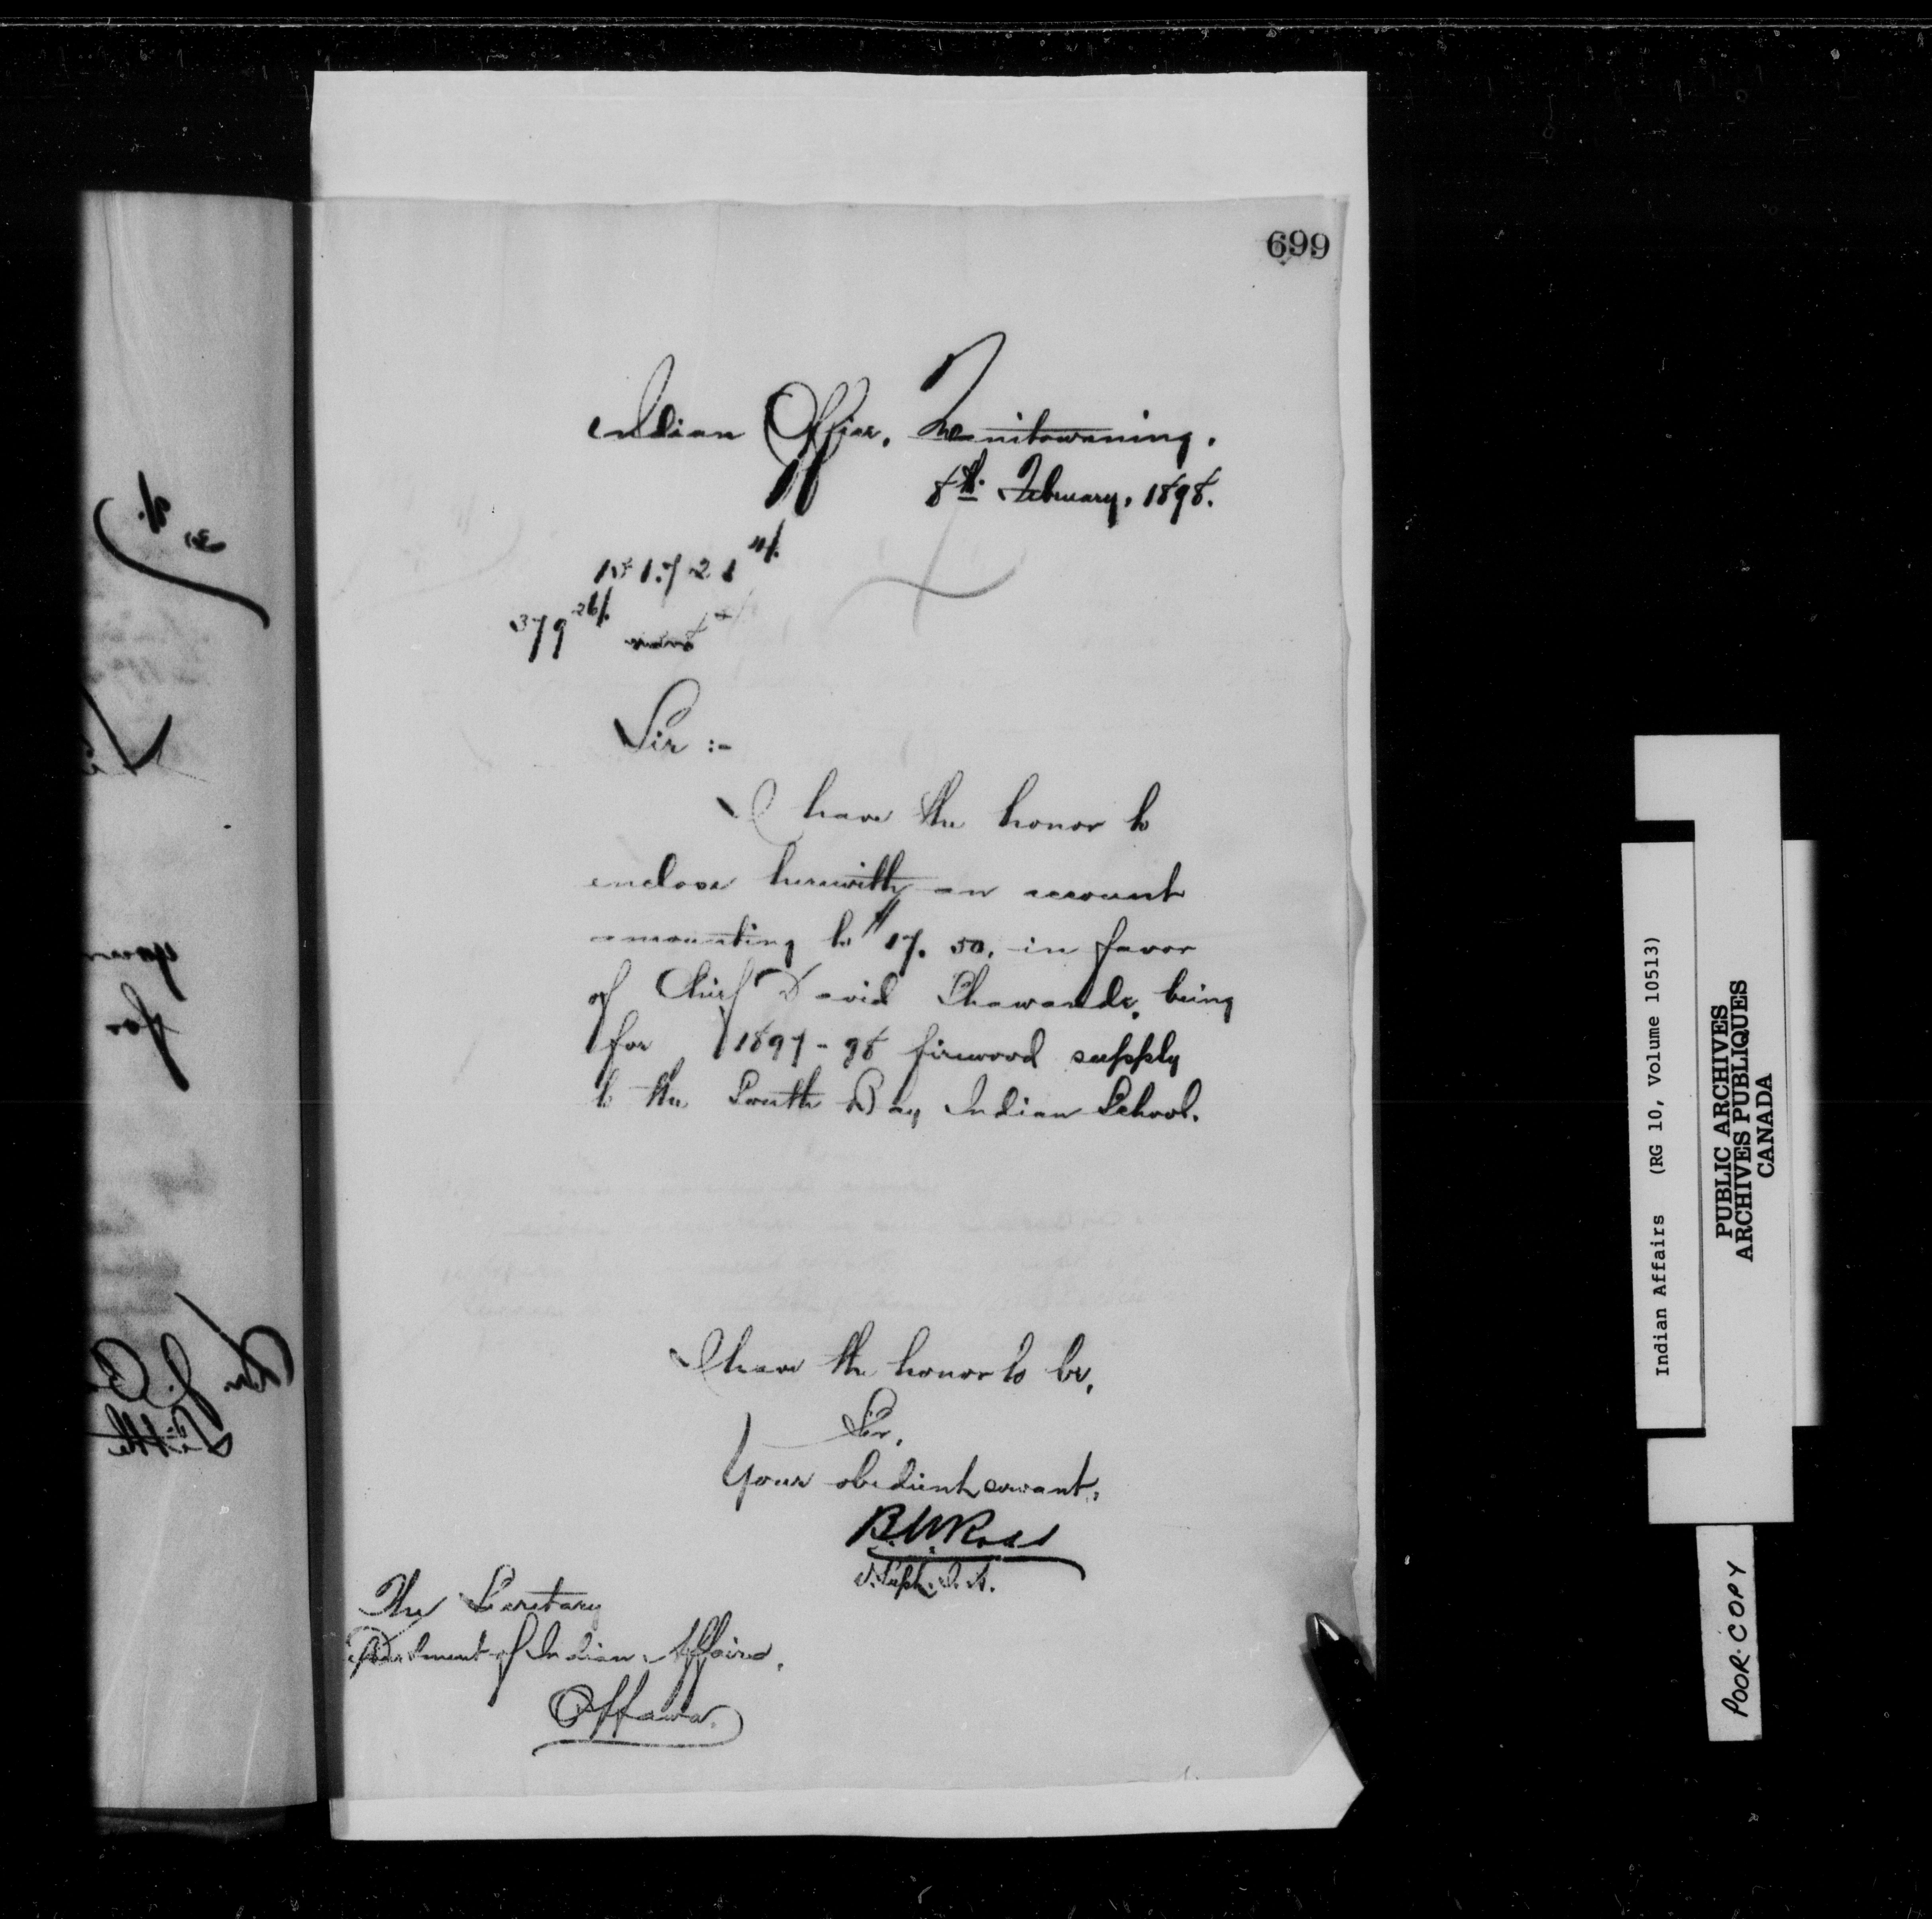 699
Indian Office, Manitowaning,
8th February, 1898.
379
Sir :-
I have the honor to
enclose herewith an account
amounting to $17.50, in favor
of Chief David Shawande, being
for 1897-98 firewood supply
to the South Bay Indian School.
I have the honor to be,
Sir,
Your obedient servant,
B.W.Ross
V. Supt. I. A.
The Secretary
Department of Indian Affairs,
Ottawa.
Indian Affairs (RG 10, Volume 10513)
PUBLIC ARCHIVES
ARCHIVES PUBLIQUES
CANADA
POOR-COPY